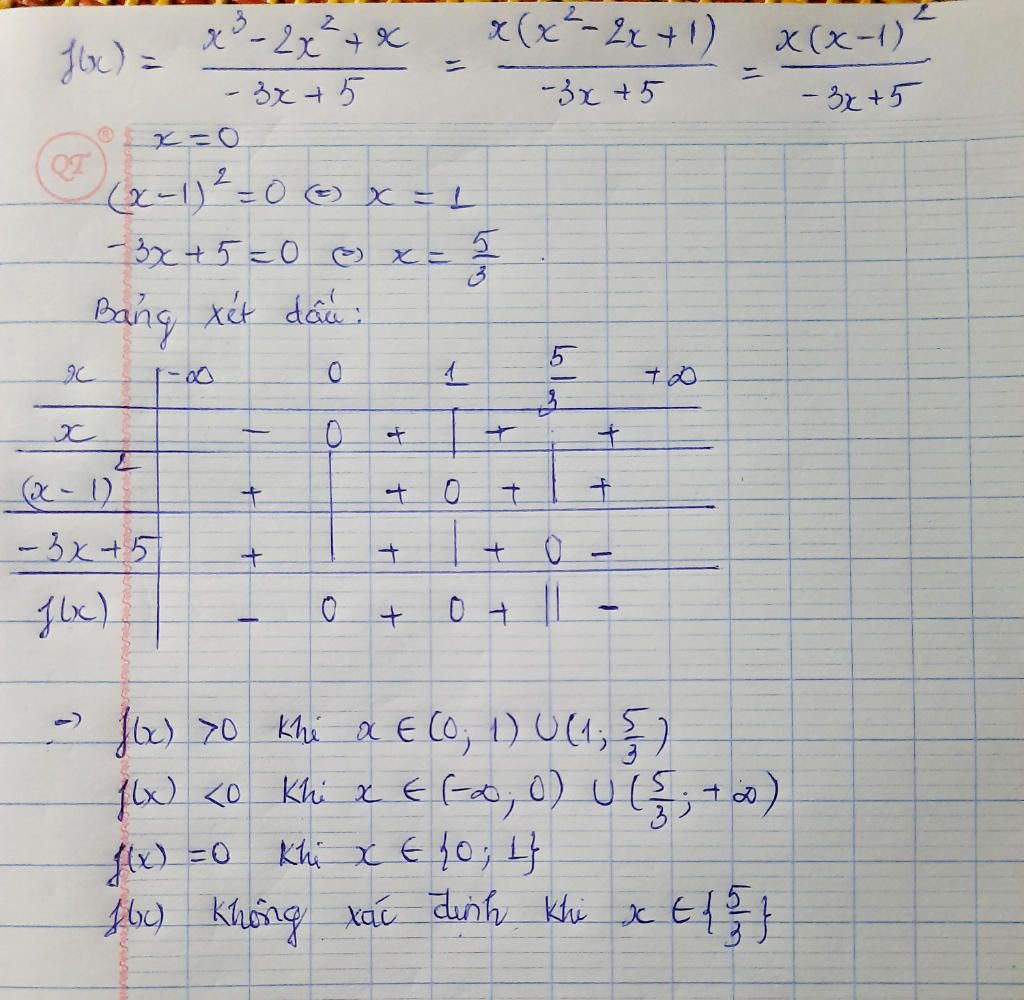 f(x) = (x³ - 2x² + x)/(-3x + 5) = x(x² - 2x + 1)/(-3x + 5) = x(x - 1)²/(-3x + 5)
QT ®
x = 0
(x - 1)² = 0 ⇔ x = 1
-3x + 5 = 0 ⇔ x = 5/3
Bảng xét dấu:
x | -∞ 0 1 5/3 +∞
x | - 0 + | + +
(x - 1)² | + | + 0 + | +
-3x + 5 | + | + | + 0 -
f(x) | - 0 + 0 + || -
→ f(x) > 0 khi x ∈ (0; 1) ∪ (1; 5/3)
f(x) < 0 khi x ∈ (-∞; 0) ∪ (5/3; +∞)
f(x) = 0 khi x ∈ {0; 1}
f(x) không xác định khi x ∈ {5/3}